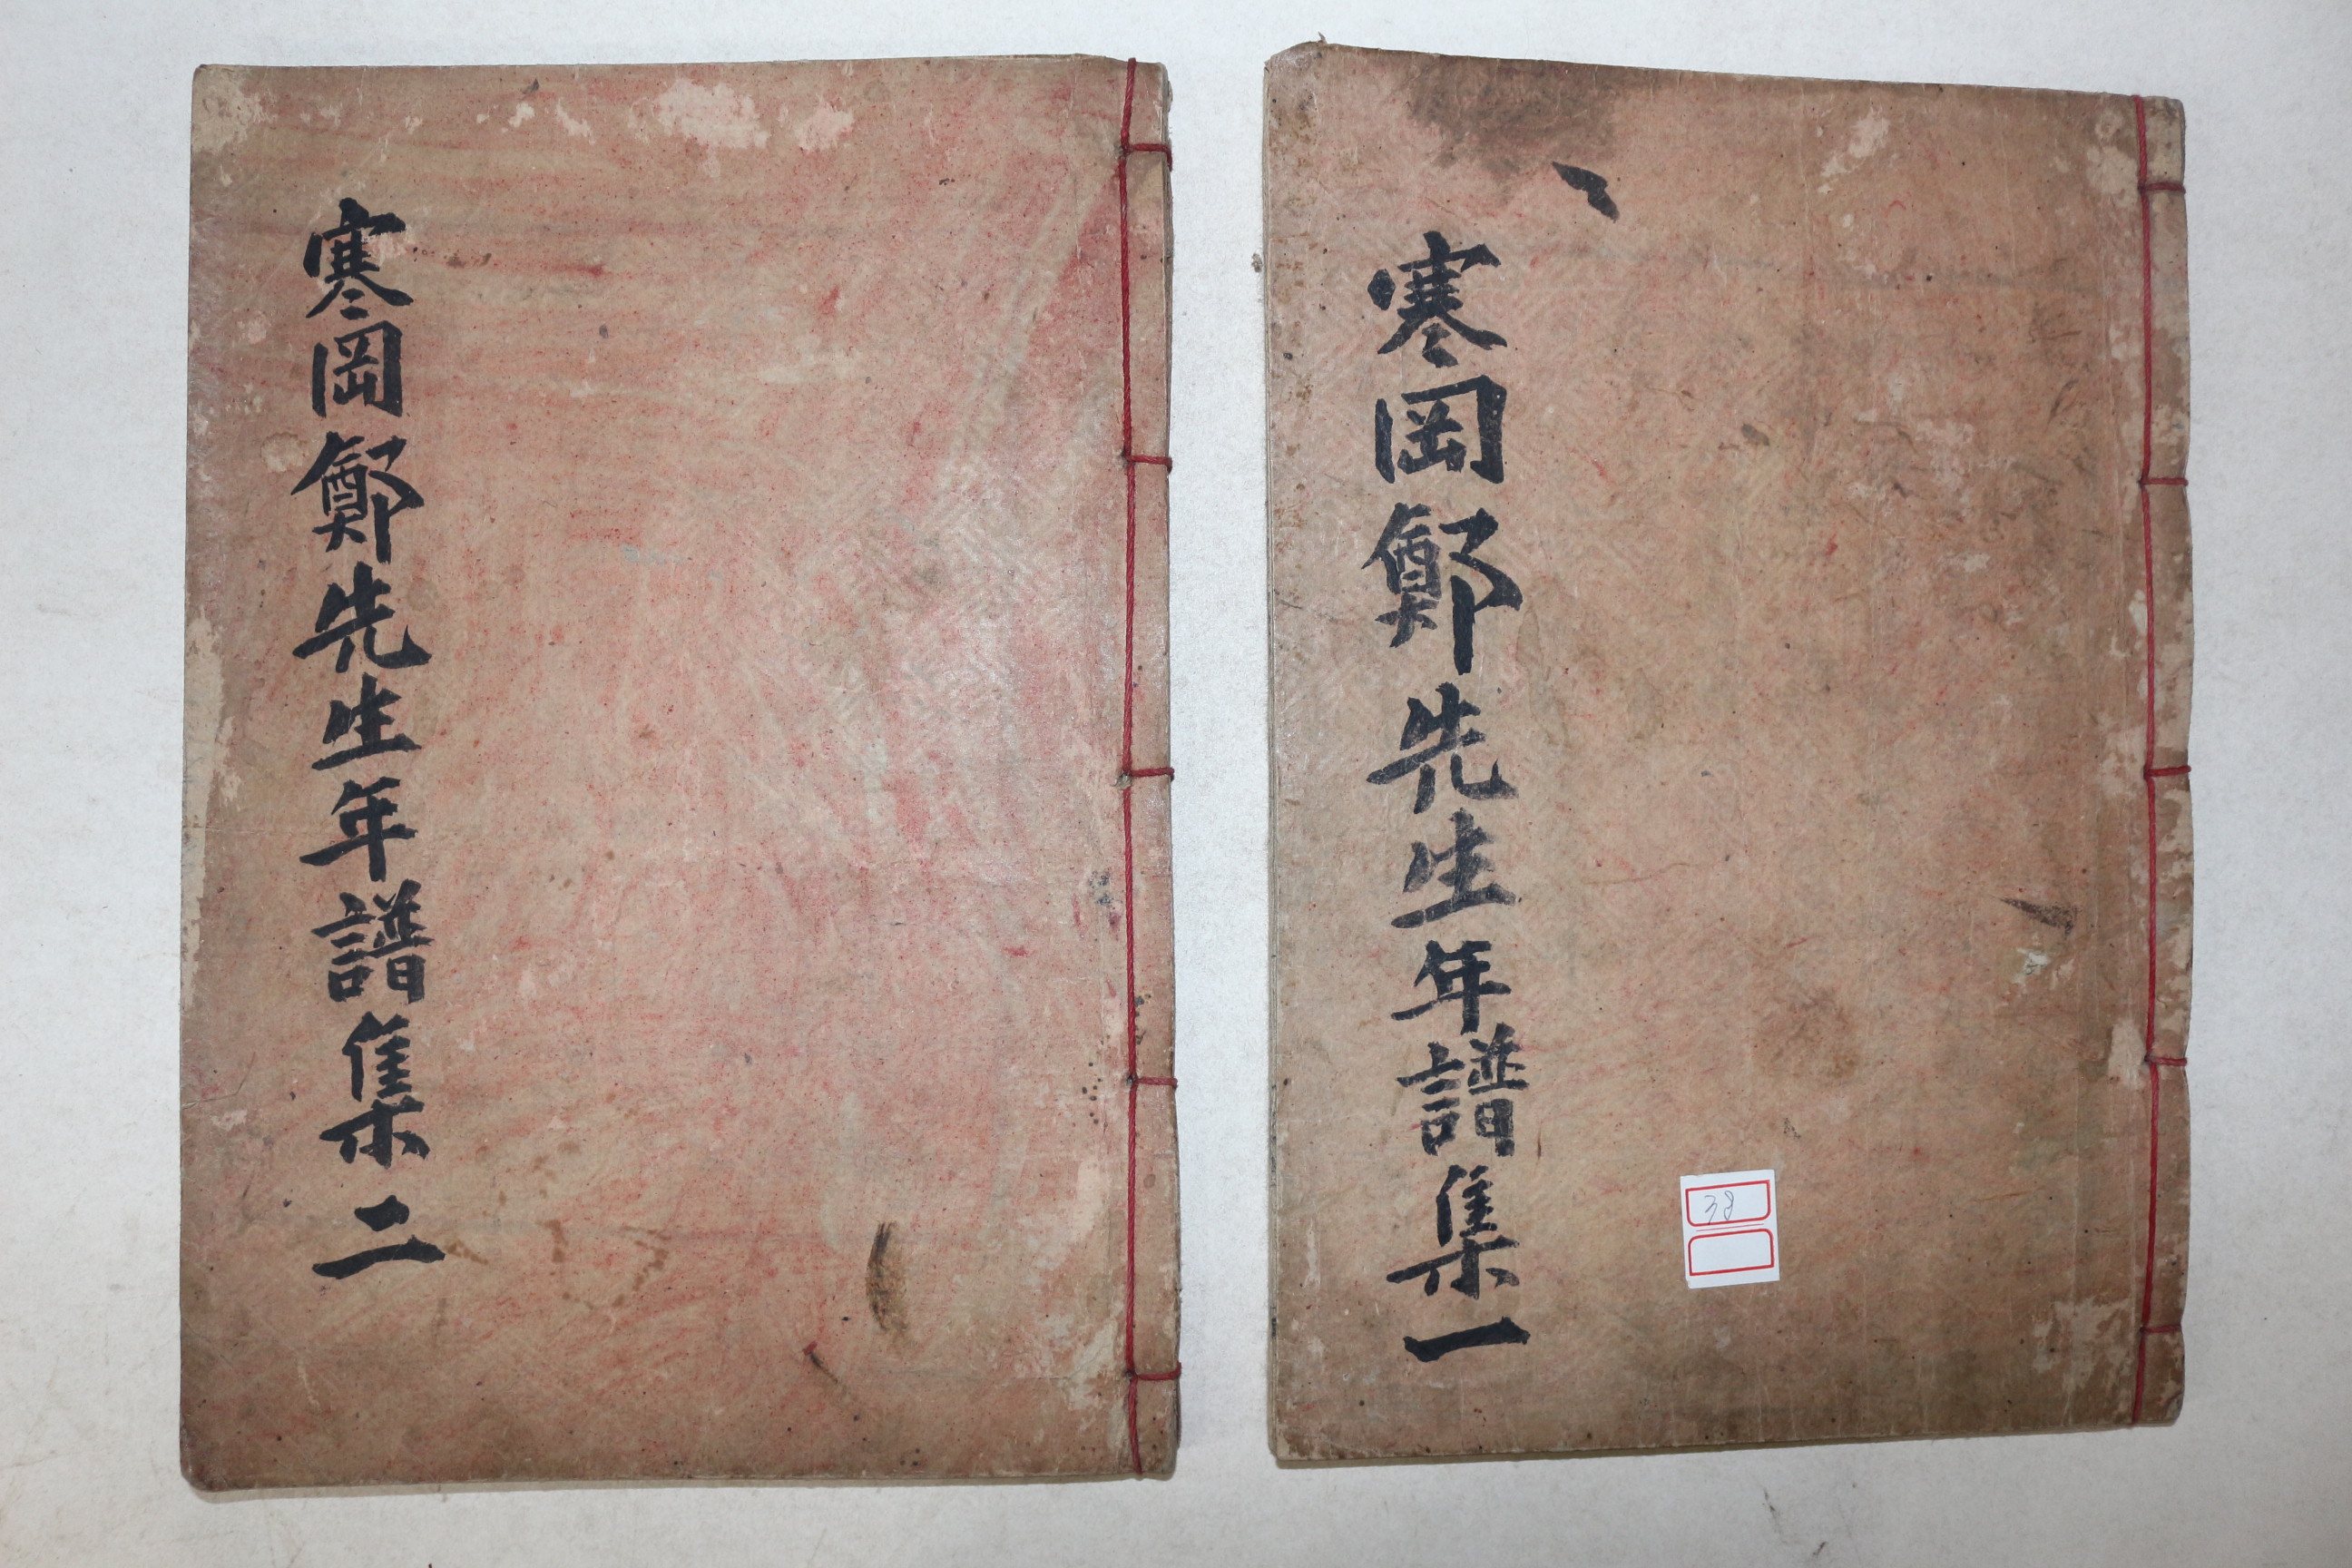 寒岡鄭先生年譜集一
38
寒岡鄭先生年譜集二